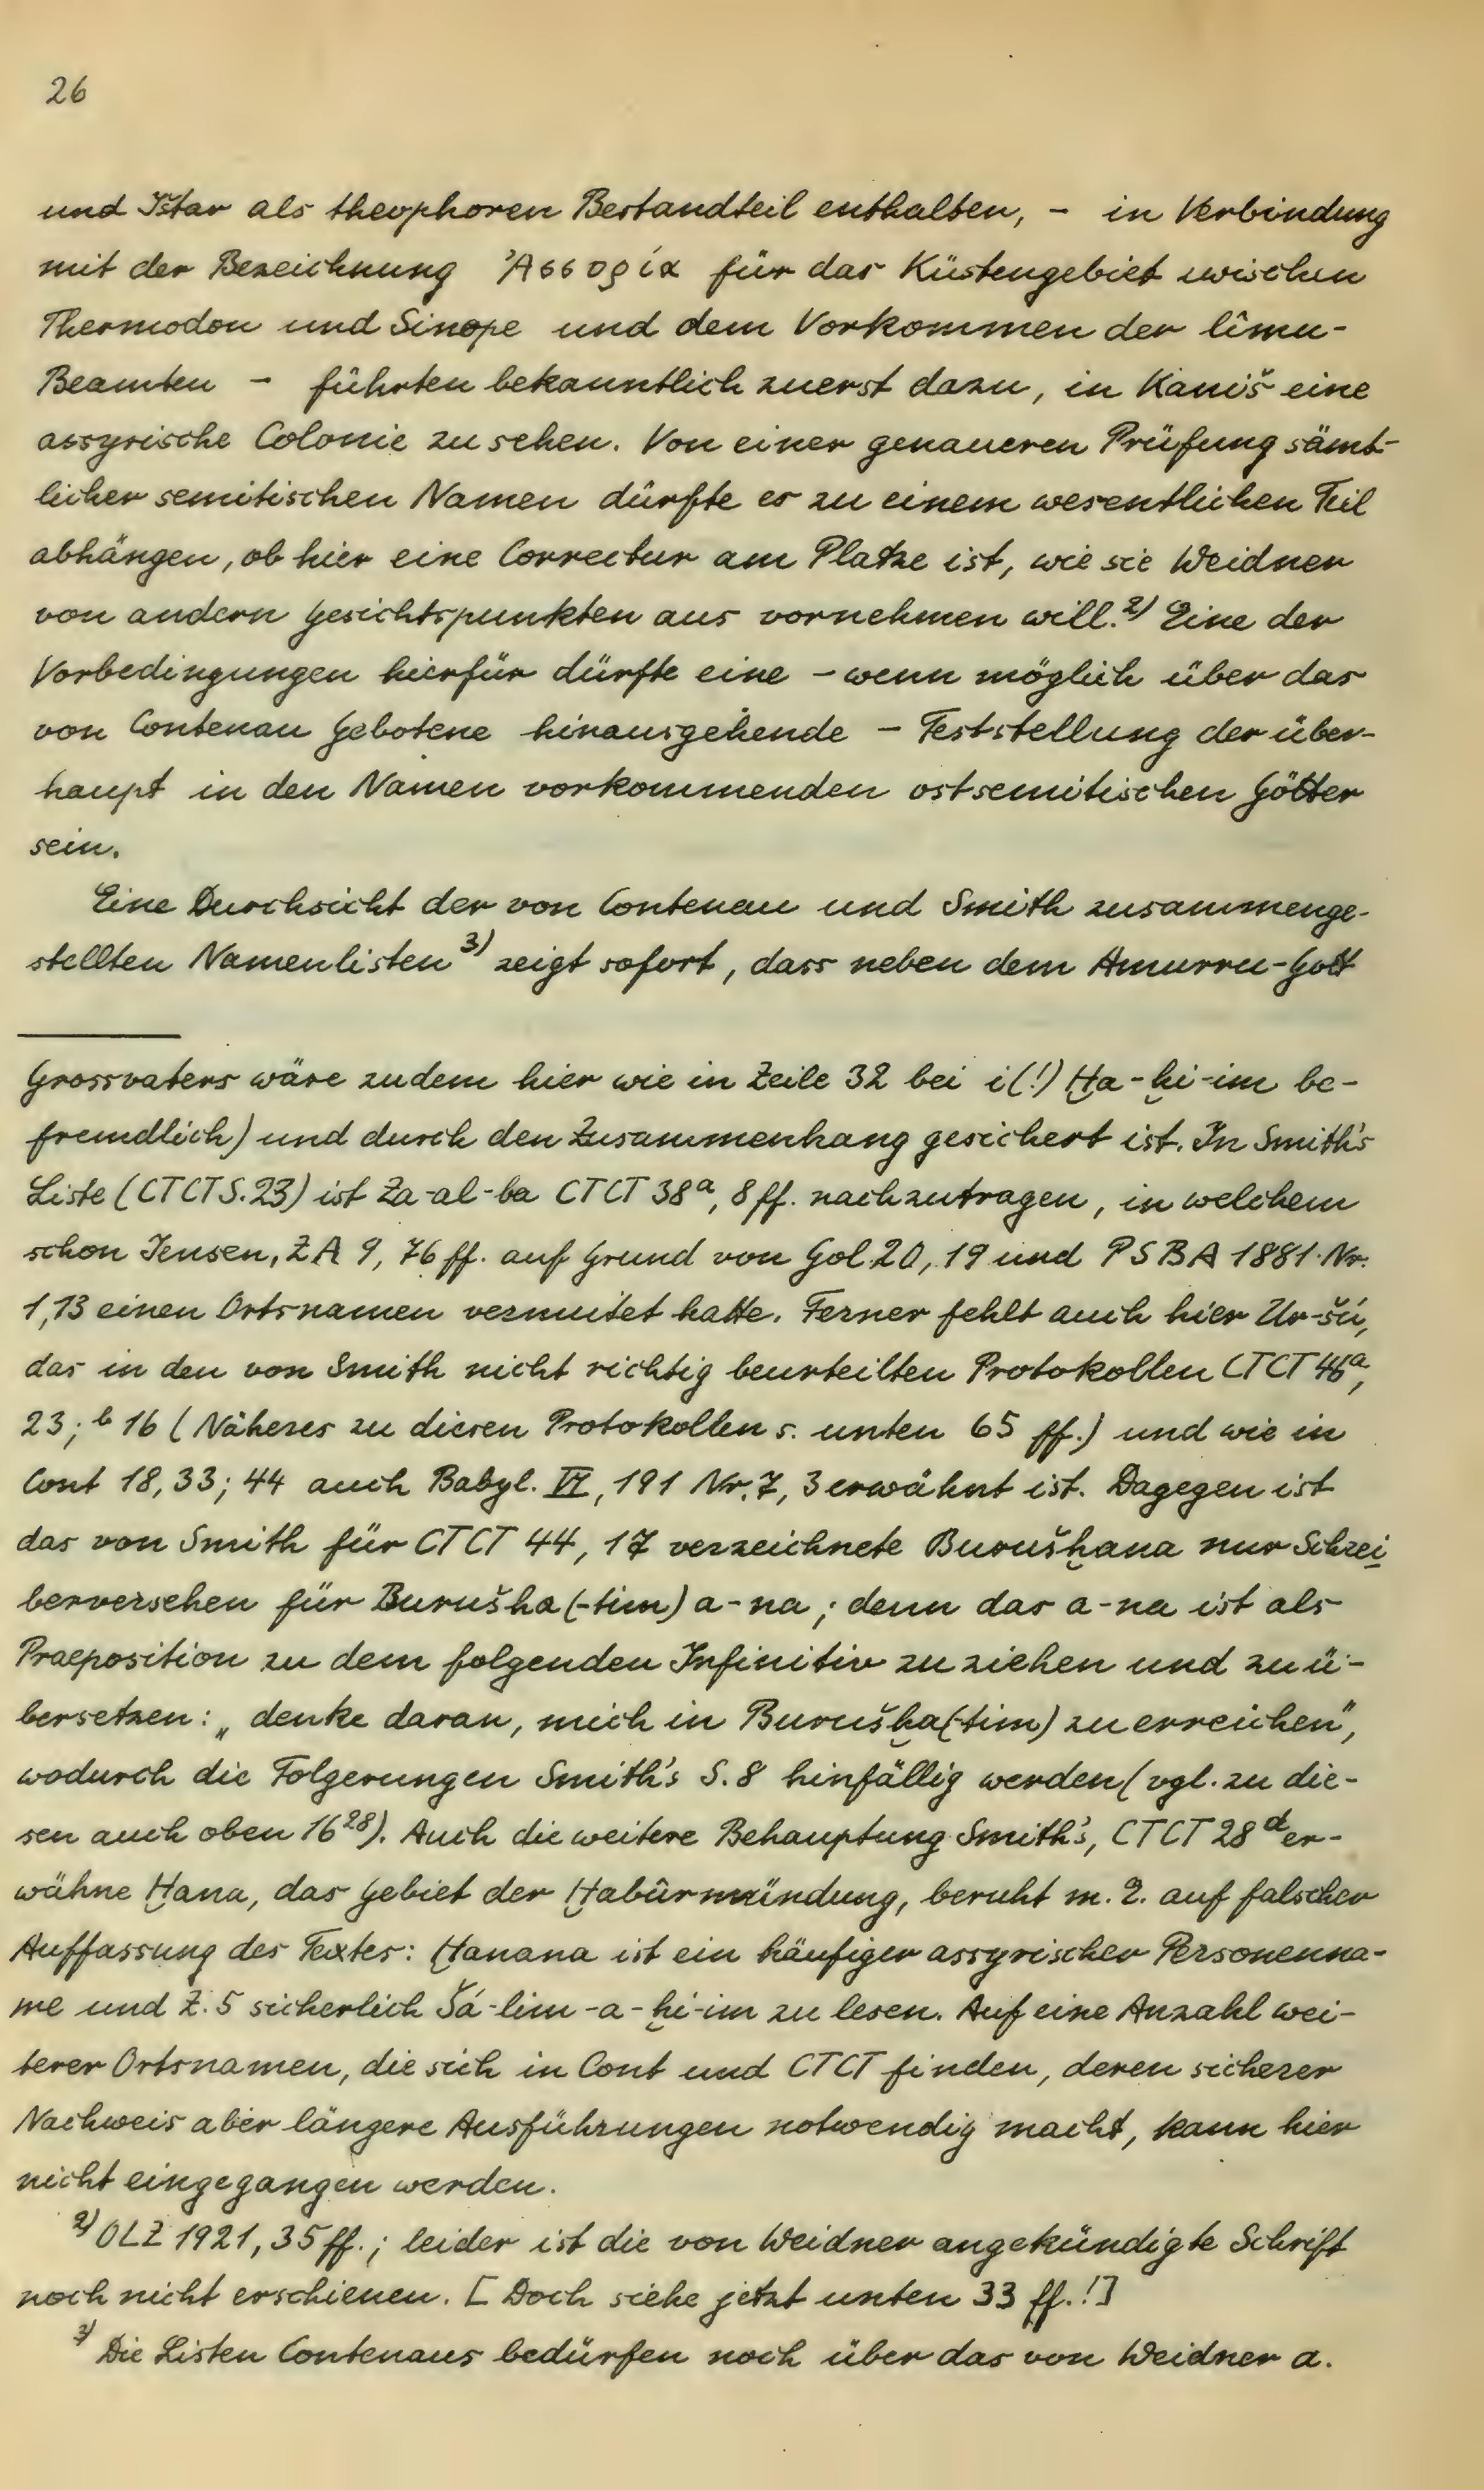 26
und Ištar als theophoren Bestandteil enthalten, - in Verbindung
mit der Bezeichnung Ἀσσυρία für das Küstengebiet zwischen
Thermodon und Sinope und dem Vorkommen der lîmu-
Beamten - führten bekanntlich zuerst dazu, in Kaniš eine
assyrische Colonie zu sehen. Von einer genaueren Prüfung sämt-
licher semitischen Namen dürfte es zu einem wesentlichen Teil
abhängen, ob hier eine Correctur am Platze ist, wie sie Weidner
von andern Gesichtspunkten aus vornehmen will.²⁾ Eine der
Vorbedingungen hierfür dürfte eine - wenn möglich über das
von Contenau Gebotene hinausgehende - Feststellung der über-
haupt in den Namen vorkommenden ostsemitischen Götter
sein.
Eine Durchsicht der von Contenau und Smith zusammenge-
stellten Namenlisten³⁾ zeigt sofort, dass neben dem Amurru-Gott
Grossvaters wäre zudem hier wie in Zeile 32 bei i(!) Ḫa-ḫi-im be-
fremdlich) und durch den Zusammenhang gesichert ist. In Smith's
Liste (CTCT S. 23) ist Za-al-ba CTCT 38ᵃ, 8 ff. nachzutragen, in welchem
schon Jensen, ZA 9, 76 ff. auf Grund von Gol. 20, 19 und PSBA 1881 Nr.
1,13 einen Ortsnamen vermutet hatte. Ferner fehlt auch hier Ur-šú,
das in den von Smith nicht richtig beurteilten Protokollen CTCT 46ᵃ,
23; ᵇ 16 (Näheres zu diesen Protokollen s. unten 65 ff.) und wie in
Cont 18, 33; 44 auch Babyl. VI, 191 Nr. 7, 3 erwähnt ist. Dagegen ist
das von Smith für CTCT 44, 17 verzeichnete Burušḫana nur Schrei
berversehen für Burušha (-tim) a-na; denn das a-na ist als
Praeposition zu dem folgenden Infinitiv zu ziehen und zu ü-
bersetzen: „denke daran, mich in Burušḫa(tim) zu erreichen",
wodurch die Folgerungen Smith's S. 8 hinfällig werden (vgl. zu die-
sen auch oben 16²⁸). Auch die weitere Behauptung Smith's, CTCT 28ᵈ er-
wähne Ḫana, das Gebiet der Ḫabûrmündung, beruht m. E. auf falscher
Auffassung des Textes: Ḫanana ist ein häufiger assyrischer Personenna-
me und Z. 5 sicherlich Šá-lim-a-ḫi-im zu lesen. Auf eine Anzahl wei-
terer Ortsnamen, die sich in Cont und CTCT finden, deren sicherer
Nachweis aber längere Ausführungen notwendig macht, kann hier
nicht eingegangen werden.
²⁾ OLZ 1921, 35 ff.; leider ist die von Weidner angekündigte Schrift
noch nicht erschienen. [Doch siehe jetzt unten 33 ff.!]
³⁾ Die Listen Contenaus bedürfen noch über das von Weidner a.